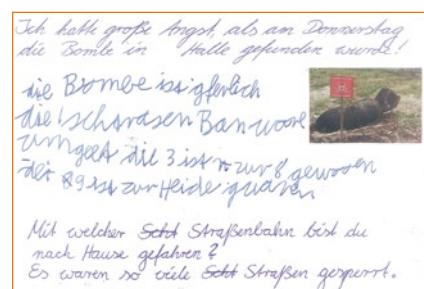 Ich hatte große Angst, als am Donnerstag
die Bombe in Halle gefunden wurde!
die Bombe ist gferlich
die schdrasen Ban
umgeet die 3 ist zur 8 geworen
der 89 ist zur Heide
Mit welcher Straßenbahn bist du
nach Hause gefahren?
Es waren so viele Straßen gesperrt.